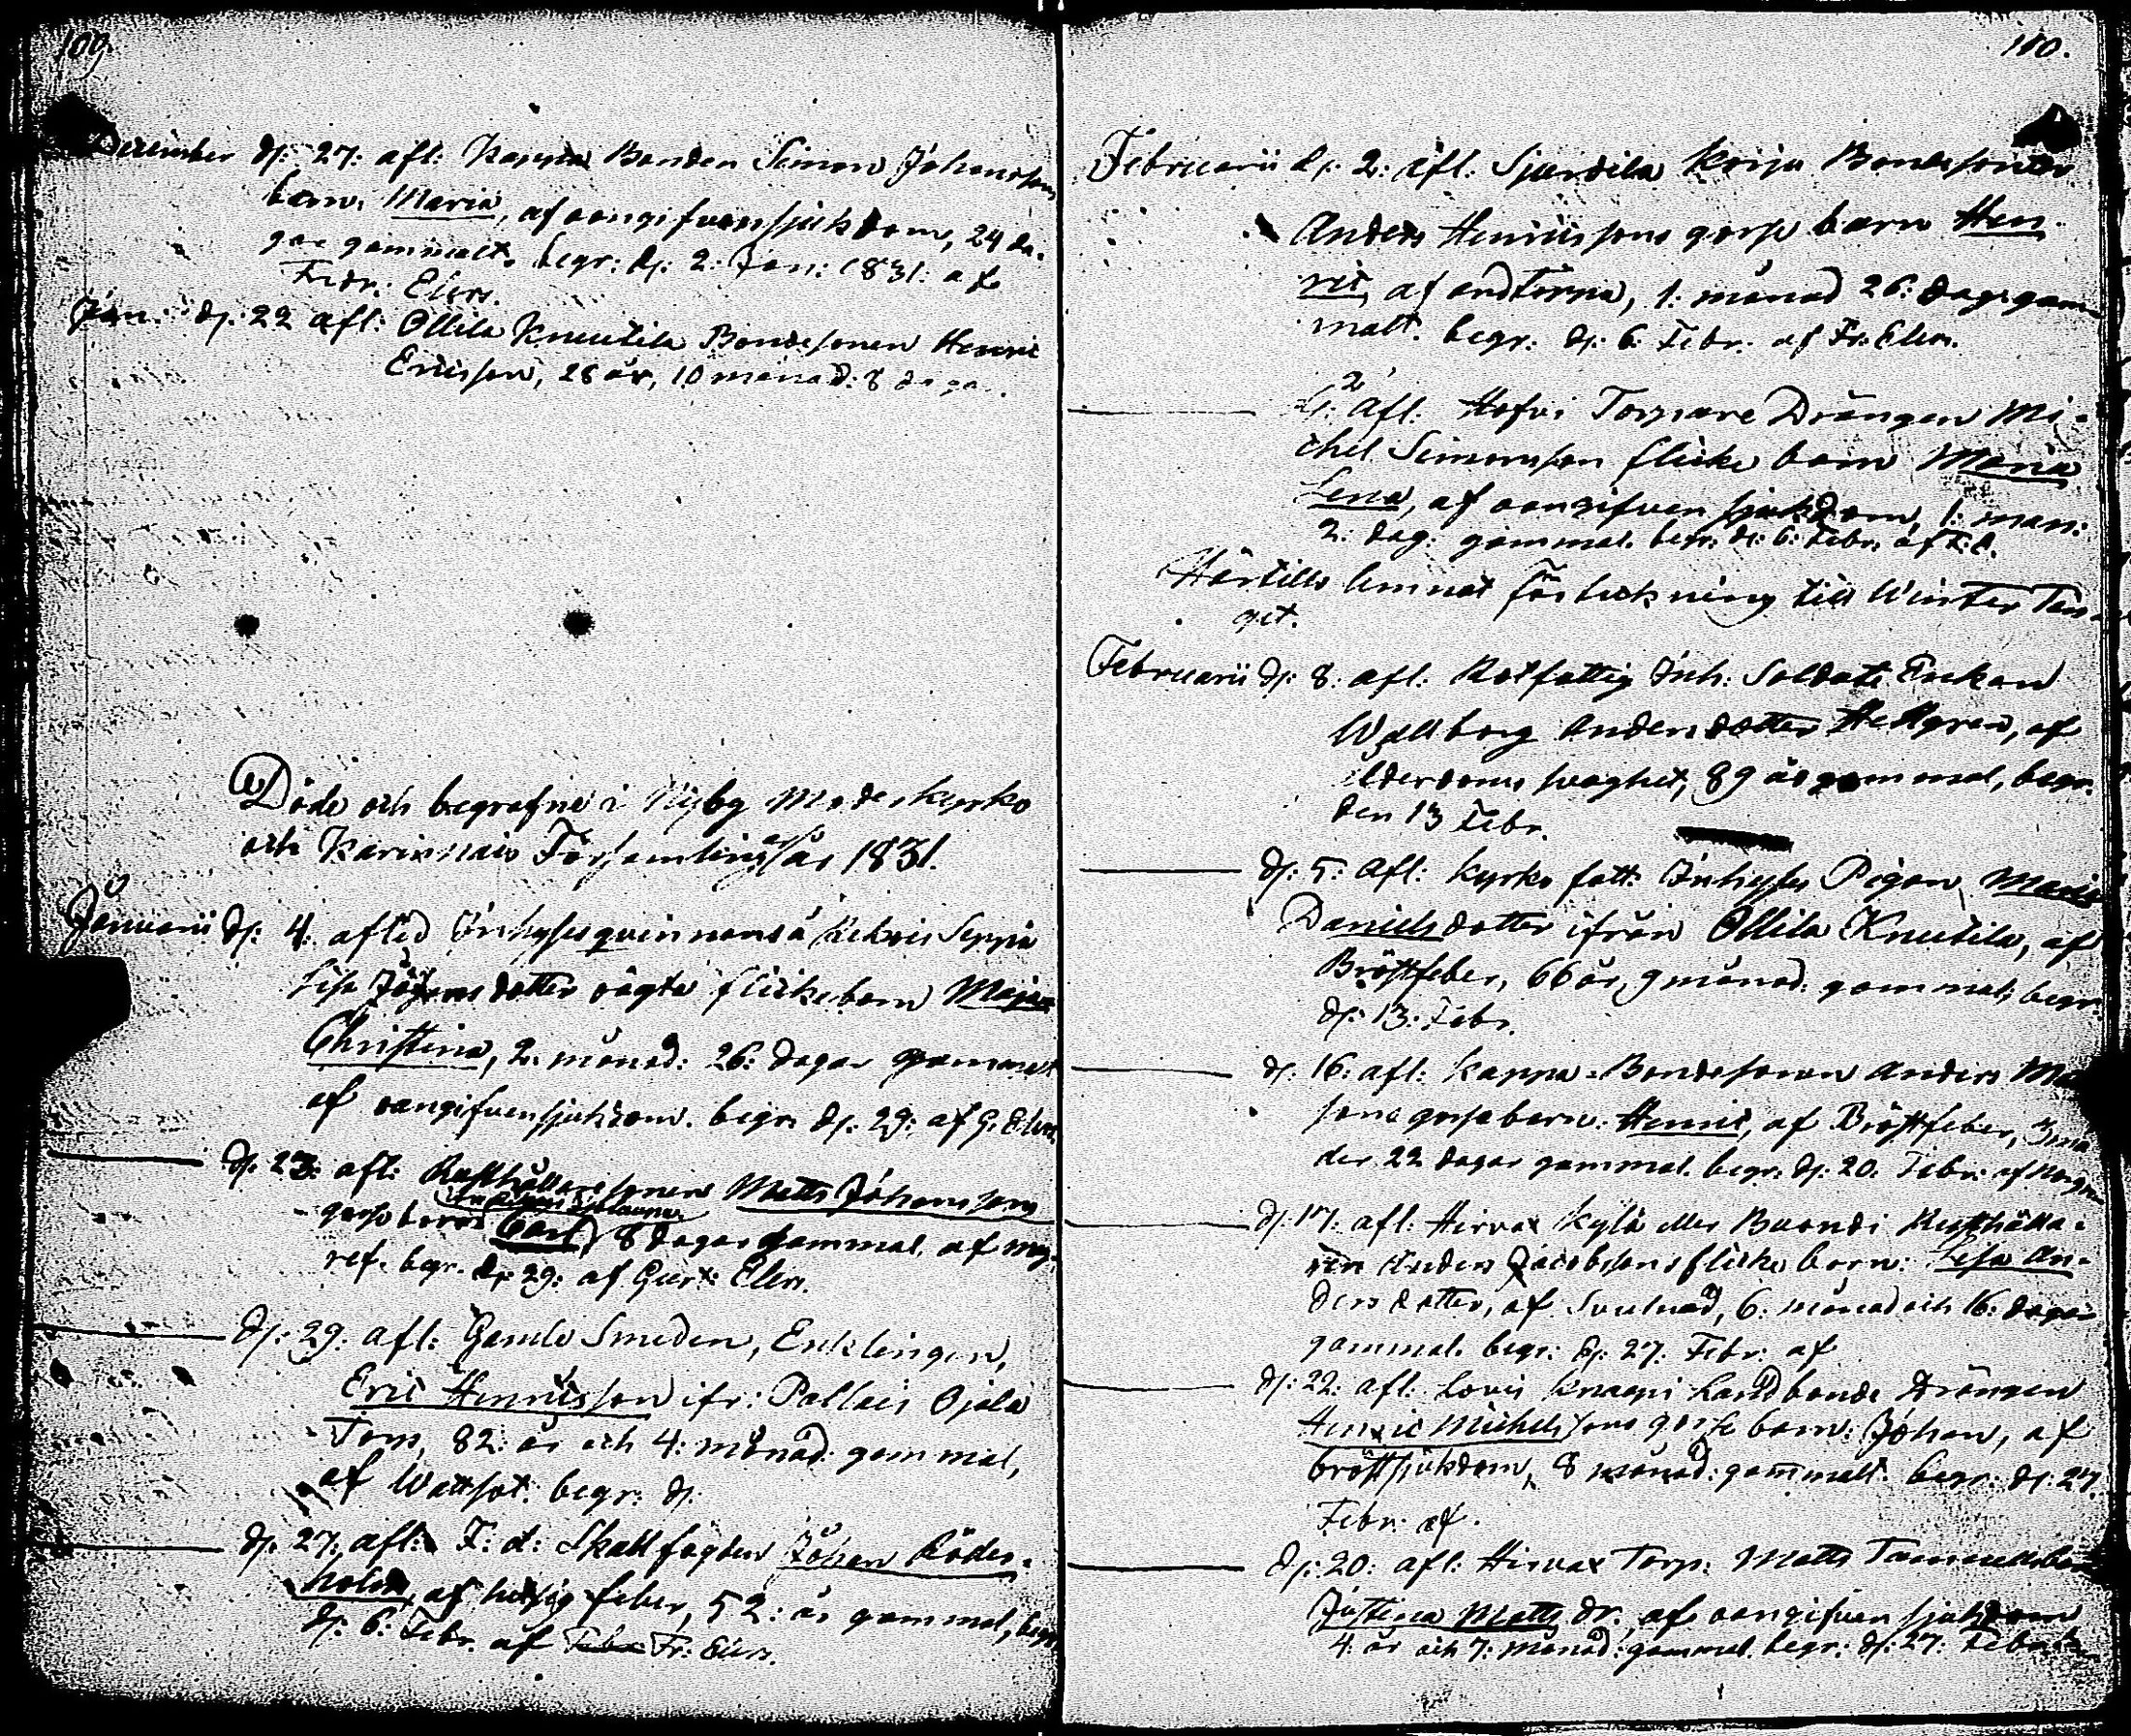 109.
December dj: 27: afl: Kappa Bonden Simon Johansson
barn, Maria, af oangifven sjukdom, 24 da-
gar gammalt. begr: dj: 2: Jan: 1831: af
Fridr: Elers.
Jan: dj: 22 afl: Ollila Knuutila Bondesonen Henric
Ericsson, 28 år, 10 månad: 8 dagar.
Döde och begrafne i Nyby Moderkyrko
och Karinais Församlingar år 1831.
Januarii dj: 4: afled Inhyses qvinnans å
Lisa dotter oägta flickebarn Maja
Christina, 2: månad: 26: dagar gammalt
af oangifven sjukdom. begr: dj: 29: af G: Elers
dj. 23: afl: Rusthållaresonen Matts Johansson
gosse barn Carl, 8 dagar gammal, af
begr. dj: 29: af Elers.
dj: 29: afl: Gamle Smeden, Enklingen,
Eric Henricsson ifr: Pallais Ojala
Torp, 82: år och 4: månad: gammal,
af Wattsot. begr: dj:
dj. 27: afl: F: d: Skallfogden Johan Röder-
holm, af hetsig feber, 52: år gammal, begr.
dj: 6: Febr. af Fr: Elers.
110.
Februarii dj: 2: afl: Sjundila Korju Bondesonens
Anders Henricssons gosse barn Hen-
ric, af andtäppa, 1: månad 26: dagar gam-
malt. begr: dj: 6: Febr: af Fr: Elers.
dj: 2 afl: Hofvi Torpare Drängen Mi-
chel Simonsson flicke barn Maria
Lena, af oangifven sjukdom, 1: mån:
2: dag: gammal. begr: dj: 6: Febr: af F: E.
Härtills lemnat förteckning till Winter Tin-
get.
Februarii dj: 8: afl: Rotfattig Inh: Soldats Enkan
Wallborg Andersdotter Hellgren, af
ålderdoms svaghet, 89 år gammal, begr.
den 13 Febr.
dj: 5: afl: Kyrko fatt: Inhyses Pigan Maria
Danielsdotter ifrån Ollila Knutila, af
Bröstfeber, 66 år, 9 månad: gammal, begr.
dj: 13: Febr.
dj: 16: afl: Kappa-Bondesonen Anders
sons gossebarn: Henric, af Bröstfeber, 3 må
der 22 dagar gammal. begr: dj: 20: Febr: af
dj: 17: afl: Hirvax Kylä eller Buondi Rusthålla-
ren Anders Jacobssons flicke barn: Lisa An-
dersdotter, af Svulnad, 6: månad och 16: dagar
gammal. begr: dj: 27: Febr: af
dj: 22: afl: Lovis Knaapi Landbonde Drängen
Henric Michelssons gosse barn: Johan, af
bröstsjukdom, 8 månad: gammalt. begr: dj: 27.
Febr: af.
dj: 20: afl: Hirvax Torp: Matts
Justina Matts dr., af oangifven sjukdom
4: år och 7: månad: gammal. begr: dj: 27: Febr: